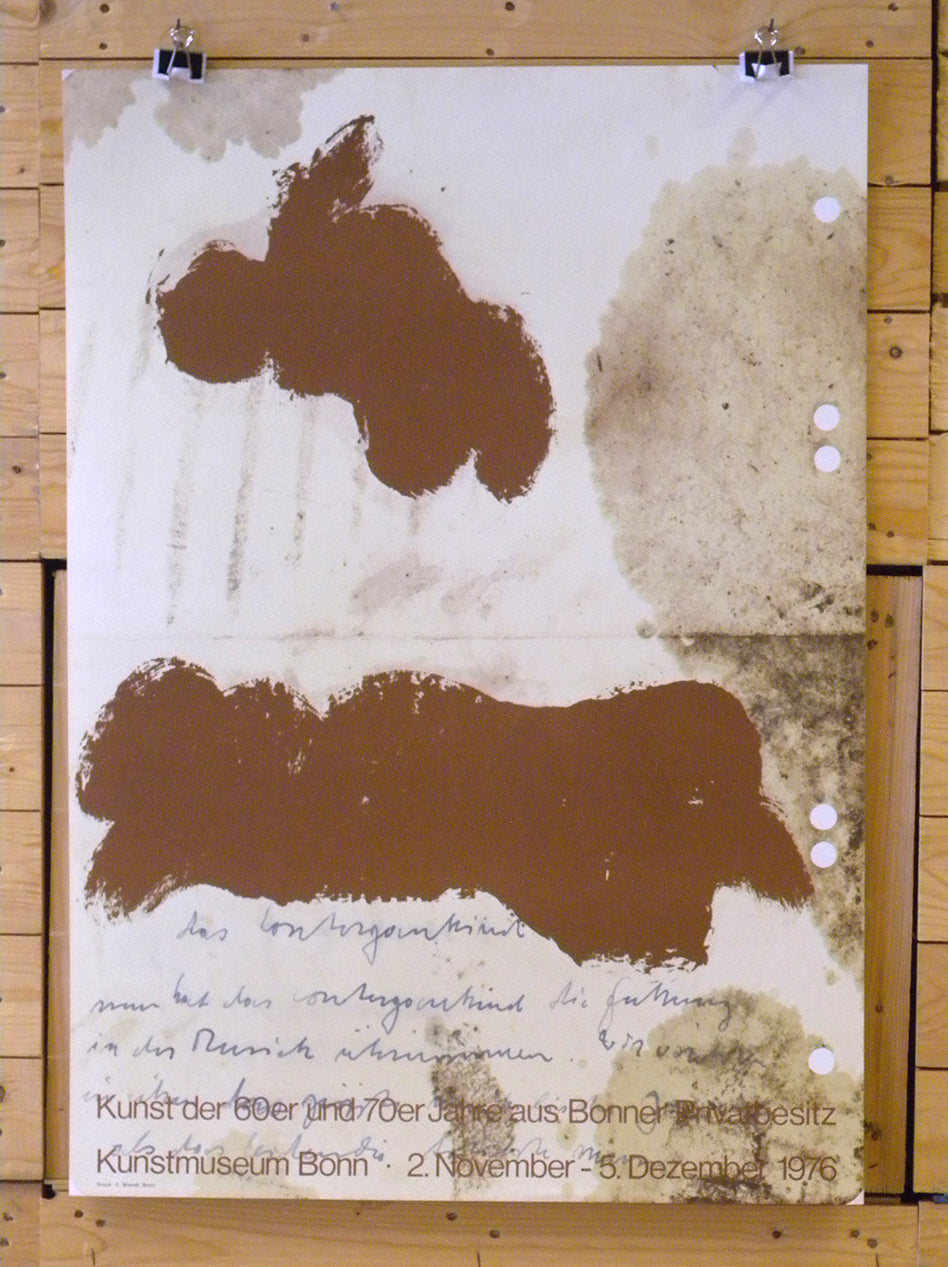 das contergankind
nun hat das contergankind die führung
in der Musik übernommen. Wir
Kunst der 60er und 70er Jahre aus Bonner Privatbesitz
als das
Kunstmuseum Bonn · 2. November - 5. Dezember 1976
Druck: C. Brandt, Bonn